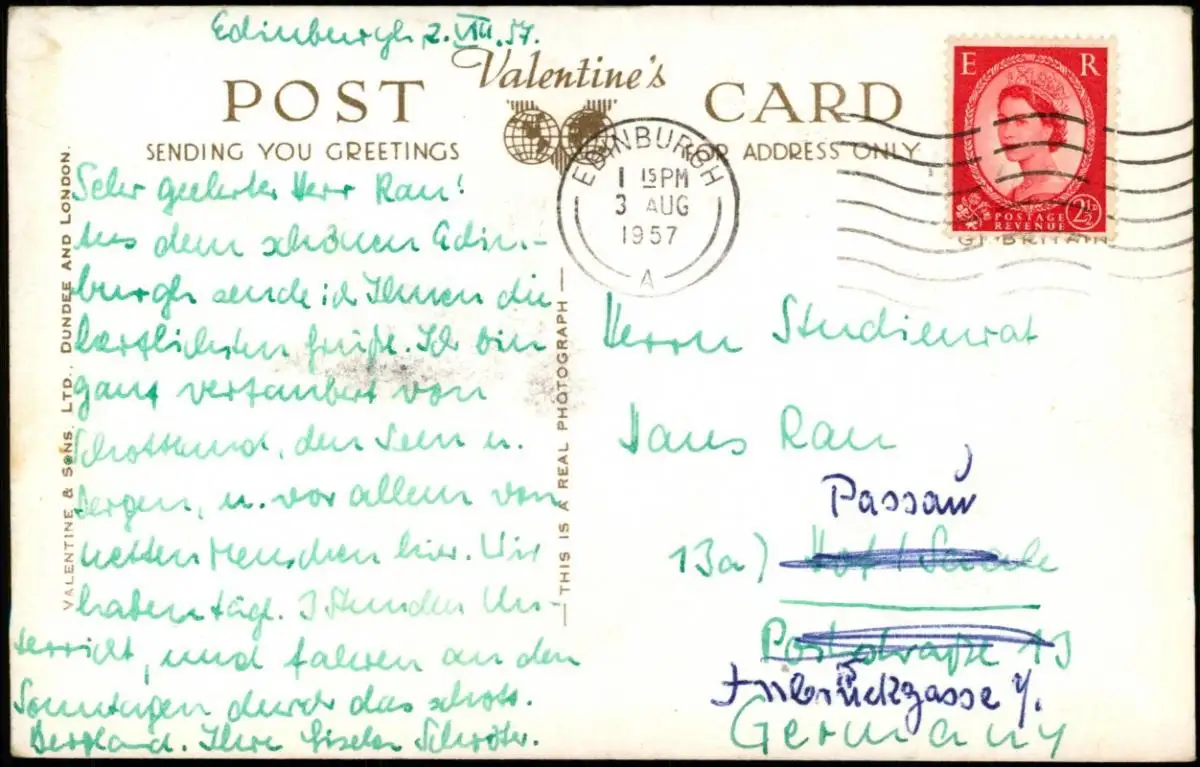 Edinburgh, 2. VIII. 57.
Valentine's
POST CARD
SENDING YOU GREETINGS
FOR ADDRESS ONLY
E R
POSTAGE
REVENUE
2½D
GT BRITAIN
EDINBURGH
1 15 PM
3 AUG
1957
A
VALENTINE & SONS, LTD., DUNDEE AND LONDON.
THIS IS A REAL PHOTOGRAPH
Sehr geehrter Herr Rau!
Aus dem schönen Edin-
burgh sende ich Ihnen die
herzlichsten Grüße. Ich bin
ganz verzaubert von
Schottland, den Seen u.
Bergen, u. vor allem von
netten Menschen hier. Wir
haben tägl. 3 Stunden Un-
terricht und fahren an den
Sonntagen durch das schott.
Bergland. Ihre Gisela Schröter.
Herrn Studienrat
Hans Rau
Passau
13a) Hof / Saale
Poststraße 13
Germany